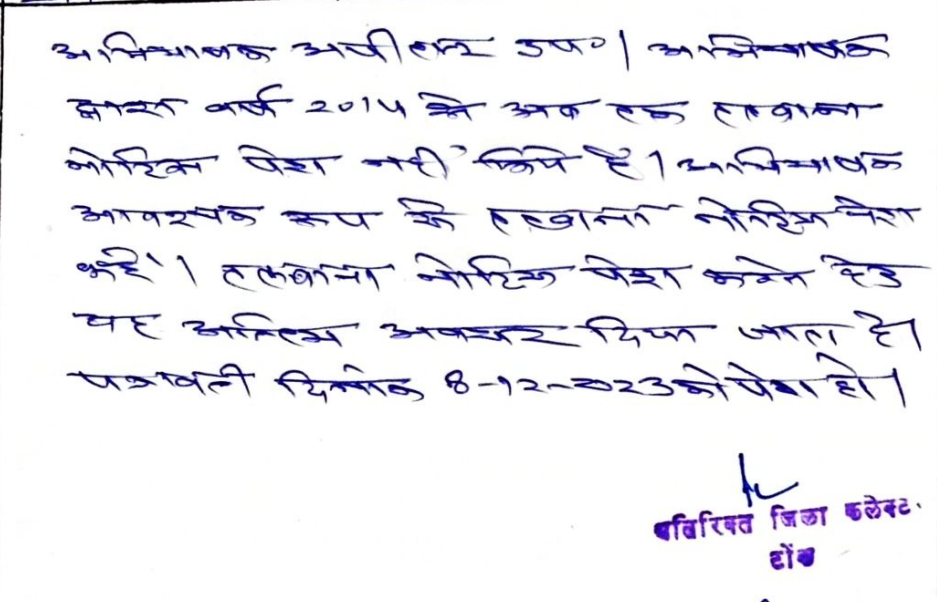 अभिभाषक अपीलान्ट उप०। अभिभाषक
द्वारा वर्ष 2014 से अब तक तलवाना
नोटिस पेश नहीं किये है। अभिभाषक
आवश्यक रूप से तलवाना नोटिस पेश
करें। तलवाना नोटिस पेश करने हेतु
यह अन्तिम अवसर दिया जाता है।
पत्रावली दिनांक 8-12-2023 को पेश हो।
अतिरिक्त जिला कलेक्टर
टोंक